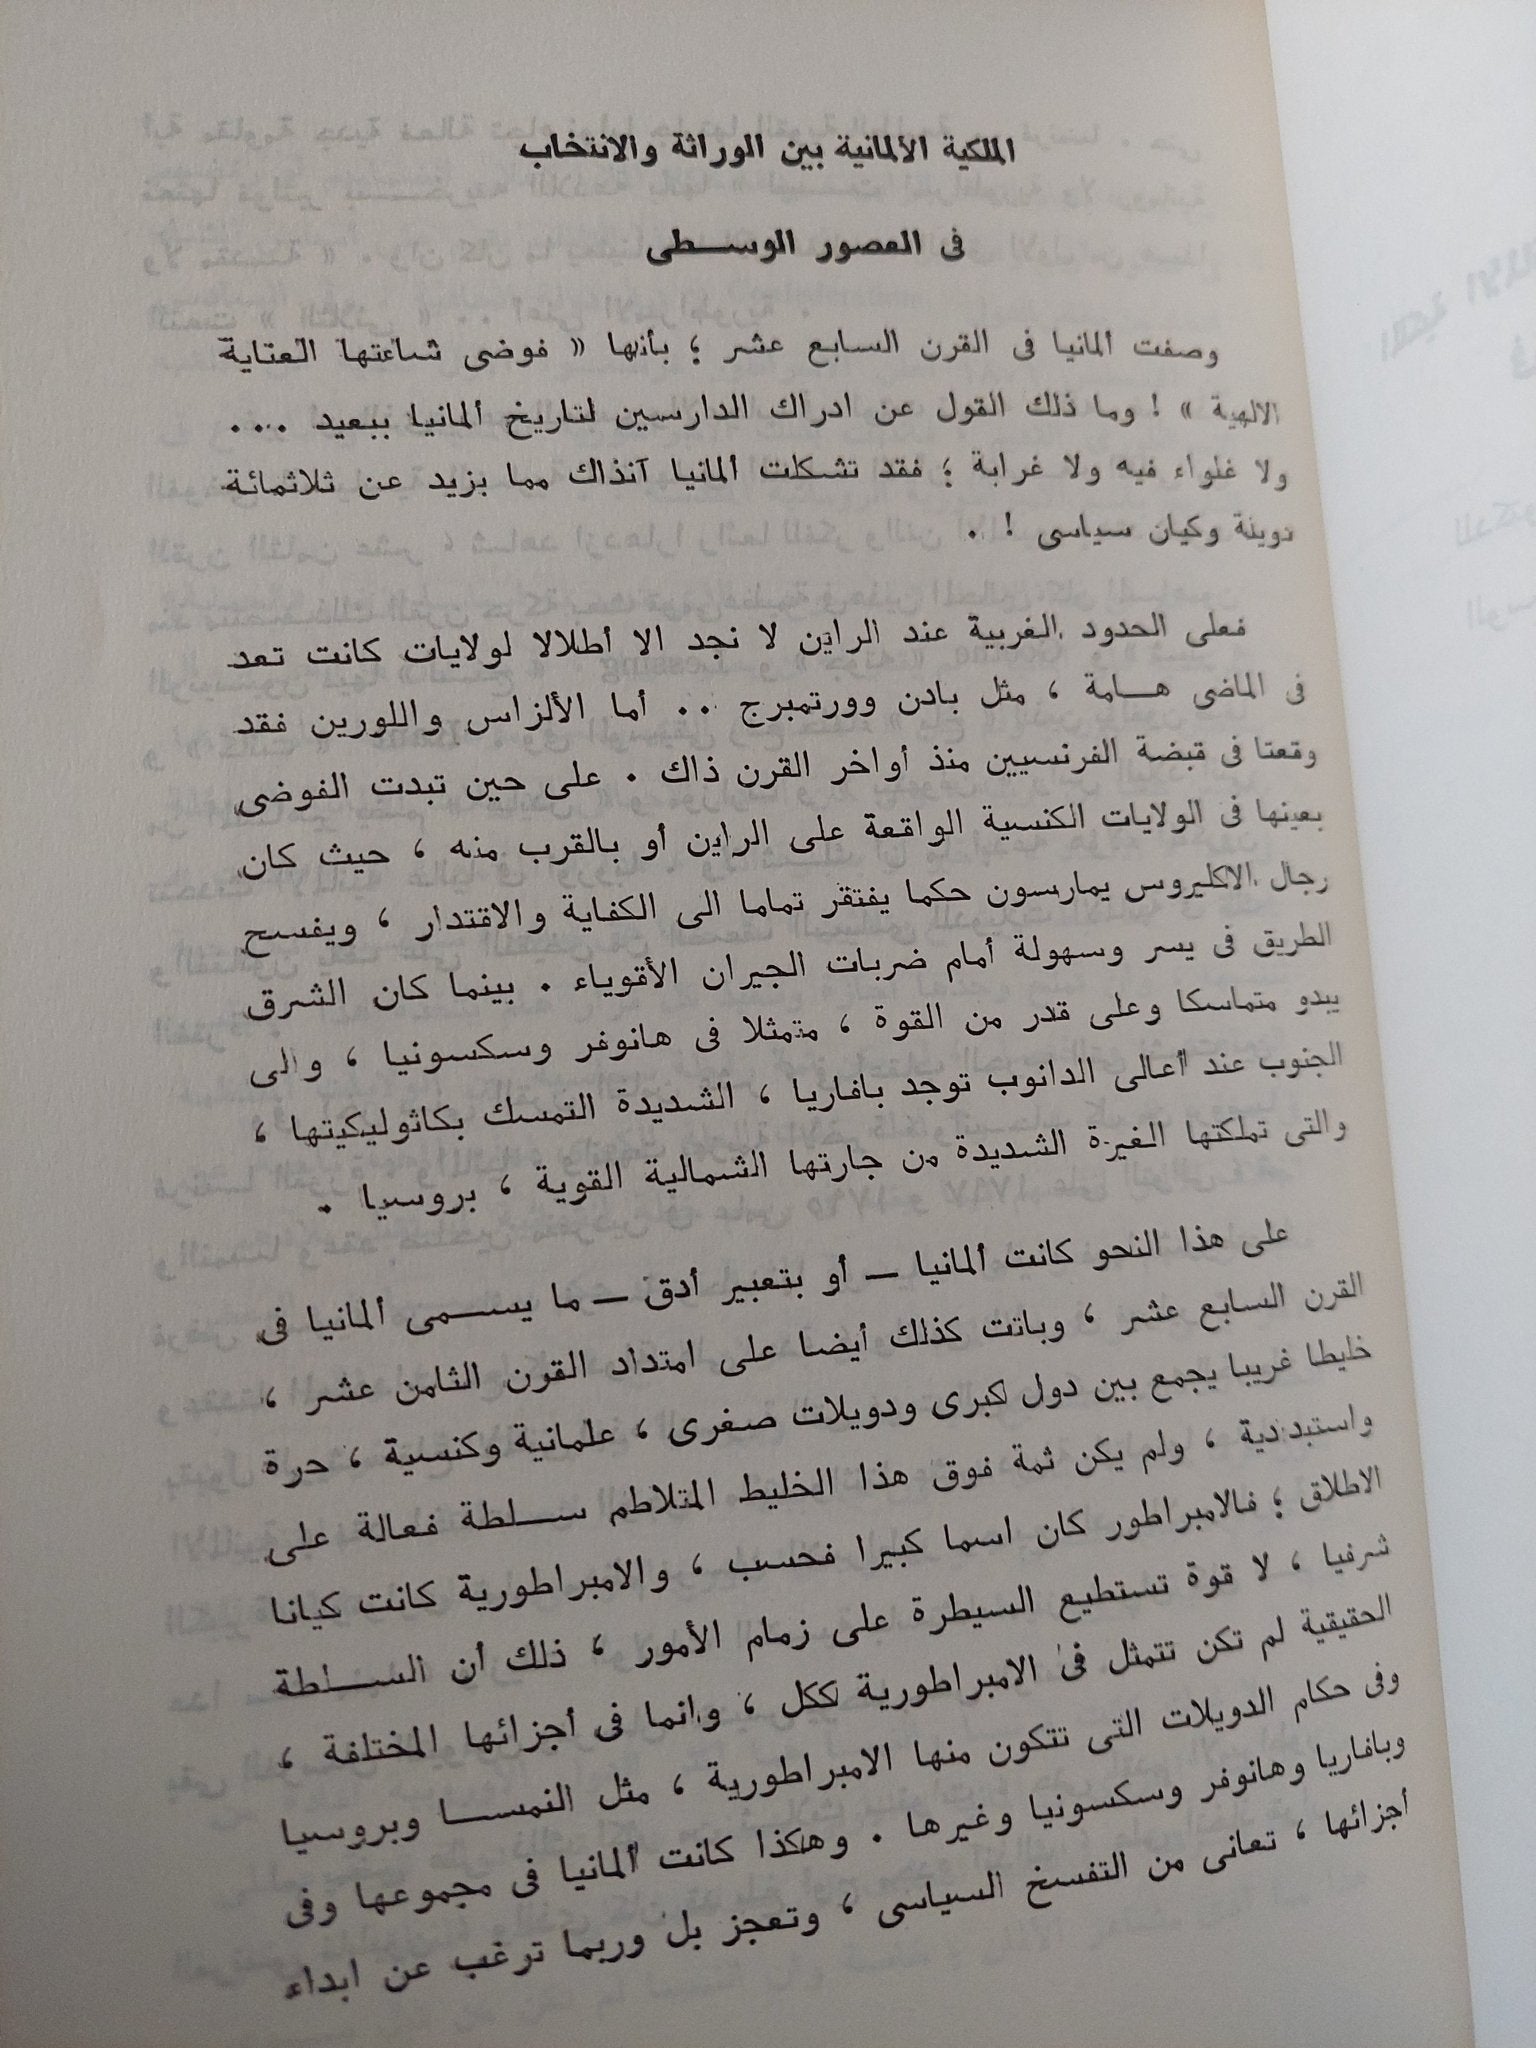 الملكية الألمانية بين الوراثة والانتخاب
فى العصور الوسطى
وصفت ألمانيا فى القرن السابع عشر ؛ بأنها « فوضى شاءتها العناية
الالهية » ! وما ذلك القول عن ادراك الدارسين لتاريخ ألمانيا ببعيد ...
ولا غلواء فيه ولا غرابة ؛ فقد تشكلت ألمانيا آنذاك مما يزيد عن ثلاثمائة
دويلة وكيان سياسى ! .
فعلى الحدود الغربية عند الراين لا نجد الا أطلالا لولايات كانت تعد
فى الماضى هامة ، مثل بادن وورتمبرج .. أما الألزاس واللورين فقد
وقعتا فى قبضة الفرنسيين منذ أواخر القرن ذاك . على حين تبدت الفوضى
بعينها فى الولايات الكنسية الواقعة على الراين أو بالقرب منه ، حيث كان
رجال الاكليروس يمارسون حكما يفتقر تماما الى الكفاية والاقتدار ، ويفسح
الطريق فى يسر وسهولة أمام ضربات الجيران الأقوياء . بينما كان الشرق
يبدو متماسكا وعلى قدر من القوة ، متمثلا فى هانوفر وسكسونيا ، والى
الجنوب عند أعالى الدانوب توجد بافاريا ، الشديدة التمسك بكاثوليكيتها ،
والتى تملكتها الغيرة الشديدة من جارتها الشمالية القوية ، بروسيا .
على هذا النحو كانت ألمانيا — أو بتعبير أدق — ما يسمى ألمانيا فى
القرن السابع عشر ، وباتت كذلك أيضا على امتداد القرن الثامن عشر ،
خليطا غريبا يجمع بين دول كبرى ودويلات صغرى ، علمانية وكنسية ، حرة
واستبدادية ، ولم يكن ثمة فوق هذا الخليط المتلاطم سلطة فعالة على
الاطلاق ؛ فالامبراطور كان اسما كبيرا فحسب ، والامبراطورية كانت كيانا
شرفيا ، لا قوة تستطيع السيطرة على زمام الأمور ، ذلك أن السلطة
الحقيقية لم تكن تتمثل فى الامبراطورية ككل ، وانما فى أجزائها المختلفة ،
وفى حكام الدويلات التى تتكون منها الامبراطورية ، مثل النمسا وبروسيا
وبافاريا وهانوفر وسكسونيا وغيرها . وهكذا كانت ألمانيا فى مجموعها وفى
أجزائها ، تعانى من التفسخ السياسى ، وتعجز بل وربما ترغب عن ابداء